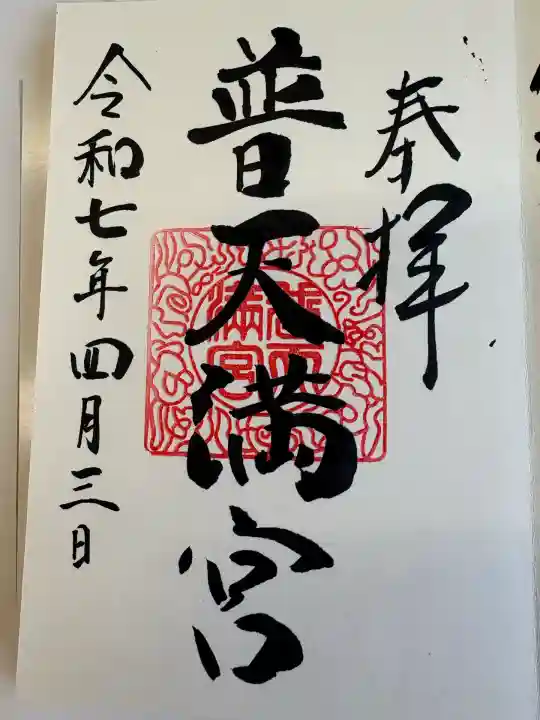 奉拝
普天満宮
普天満宮
令和七年四月三日